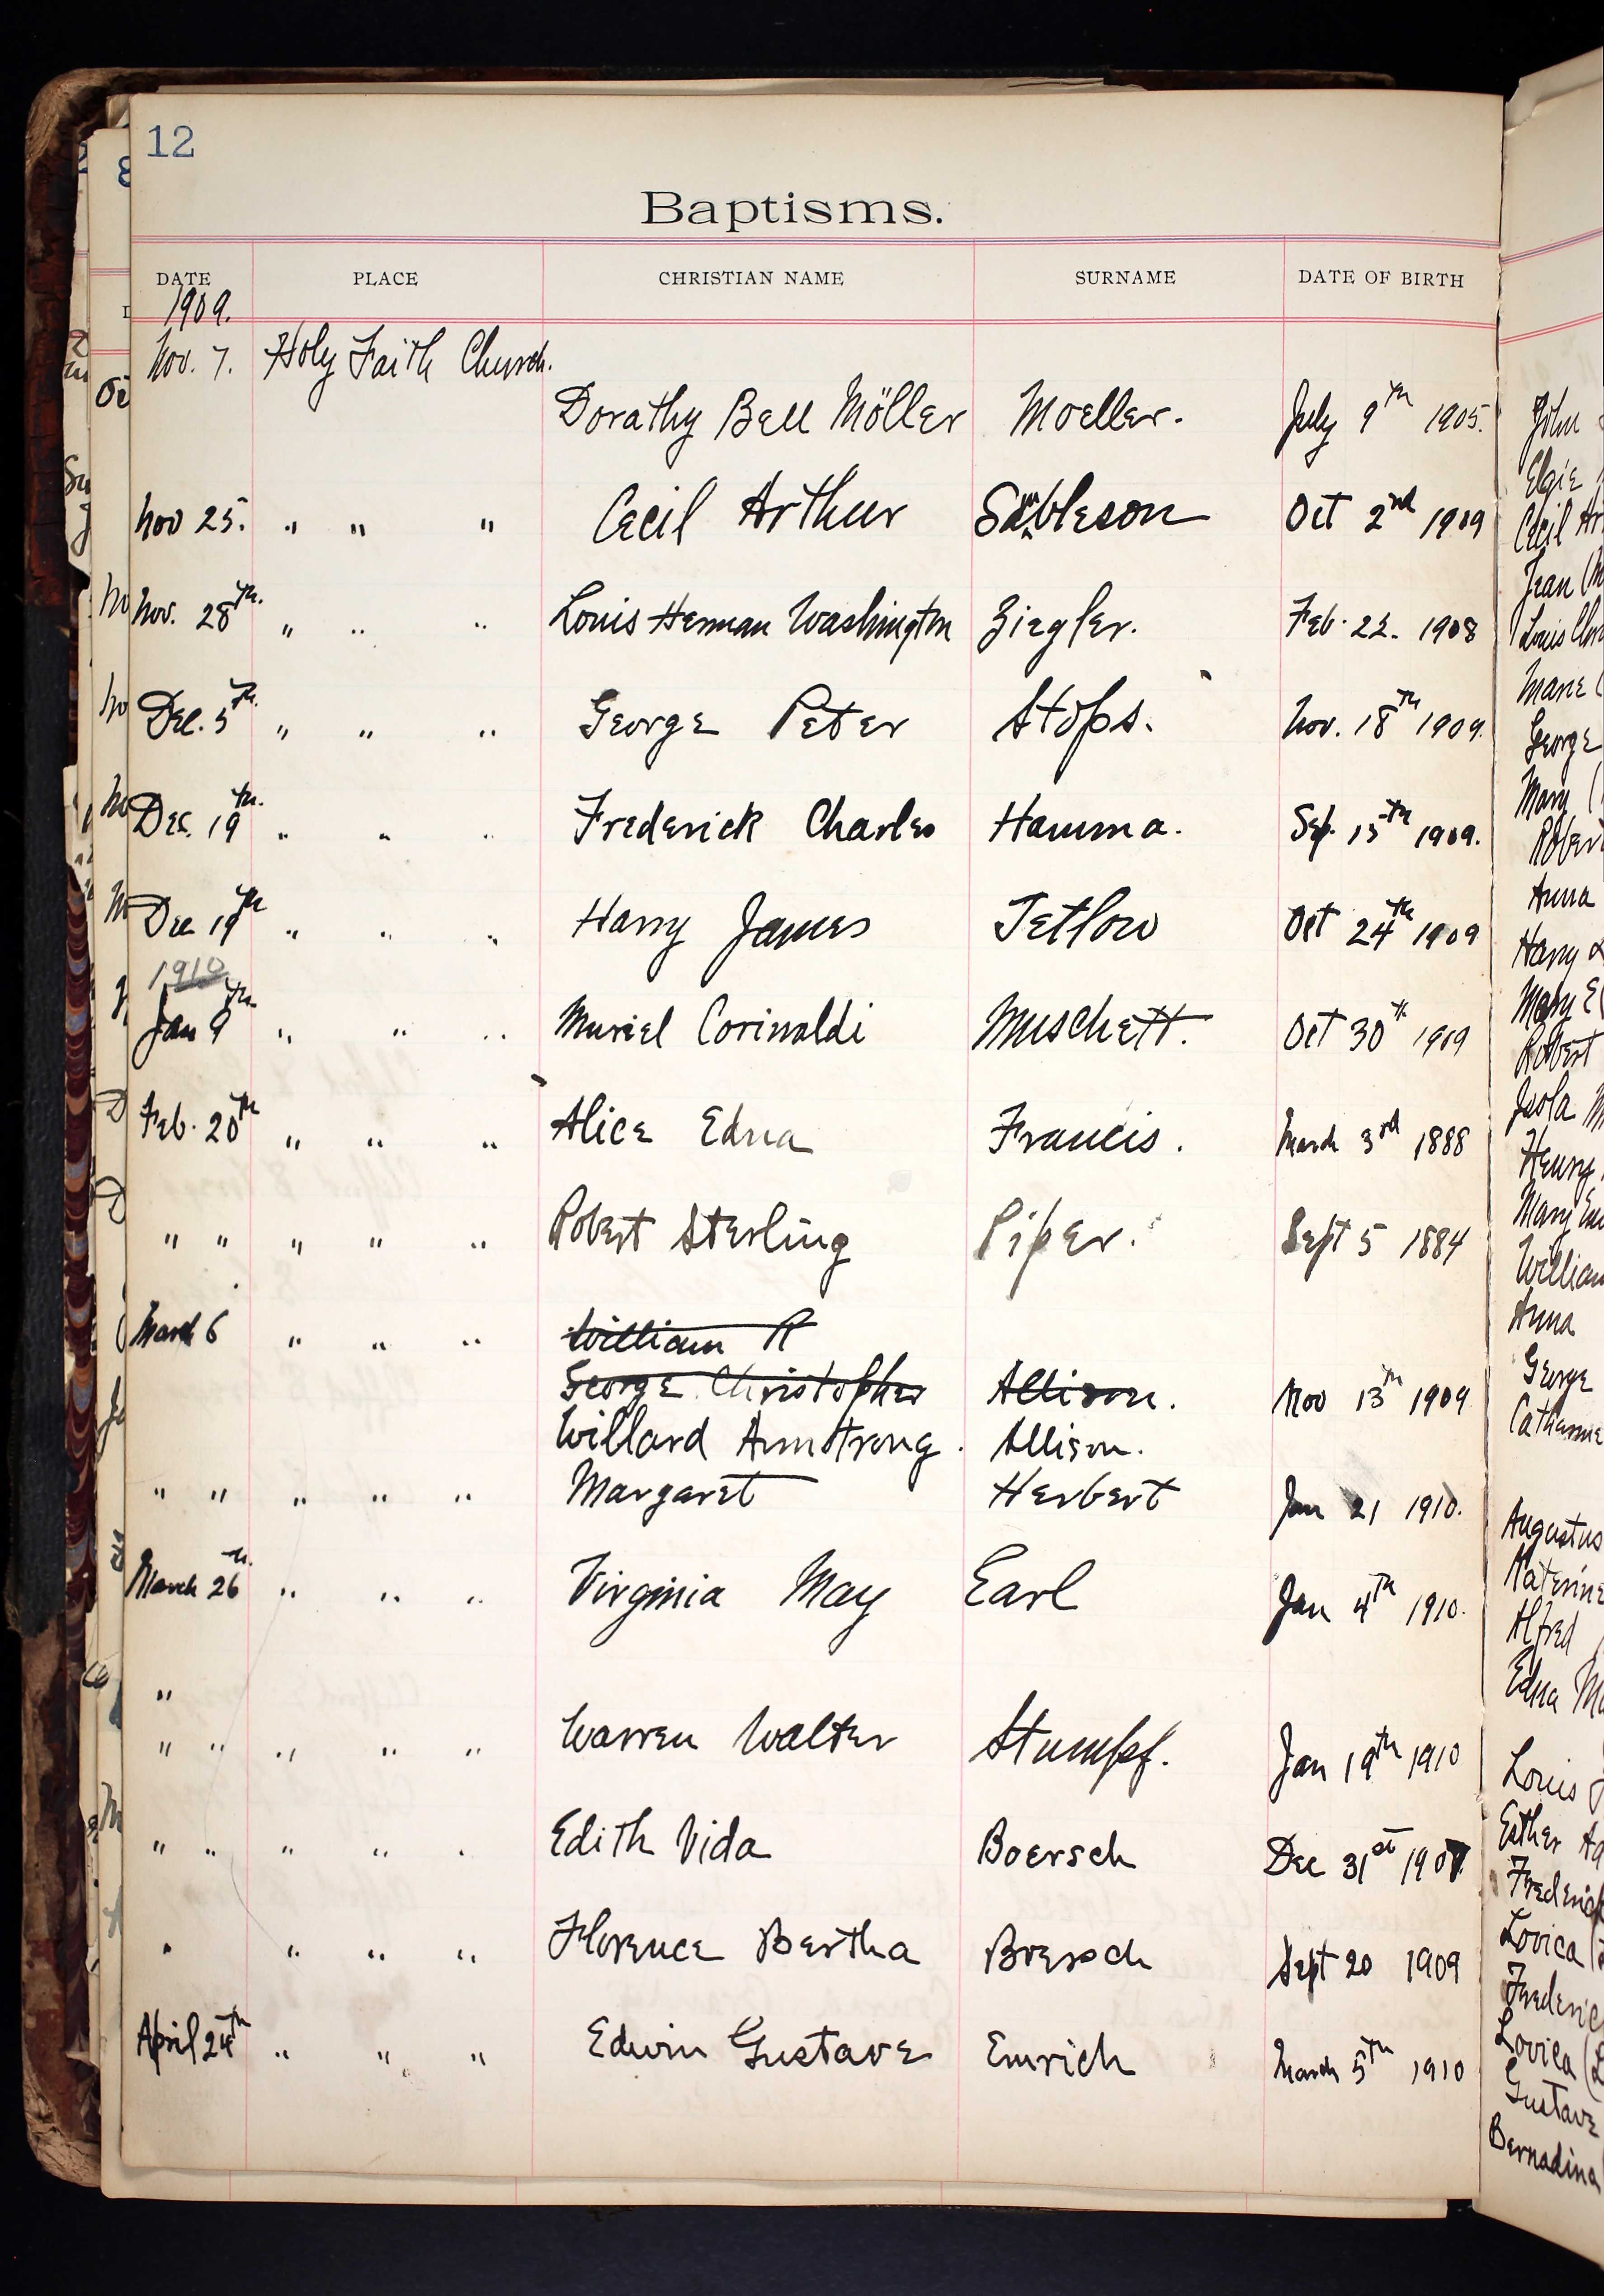 12
Baptisms.
DATE PLACE CHRISTIAN NAME SURNAME DATE OF BIRTH
1909.
Nov. 7. Holy Faith Church.
Dorathy Bell Möller Moeller. July 9th 1905.
Nov 25. " " " Cecil Arthur Oct 2nd 1909
Nov. 28th. " " " Louis Herman Washington Ziegler. Feb. 22. 1908
Dec. 5th. " " " George Peter Stops. Nov. 18th 1909.
Dec. 19th. " " " Frederick Charles Hamma. Sep. 15th 1909.
Dec 19th " " " Harry James Tetlow Oct 24th 1909
1910
Jan 9th " " " Muriel Corinaldi Muschett. Oct 30th 1909
Feb. 20th " " " Alice Edna Francis. March 3rd 1888
" " " " " Robert Sterling Piper. Sept 5 1884
March 6 " " " William R
George Christopher Allison. Nov 13th 1909
Willard Armstrong. Allison.
" " " " " Margaret Herbert Jan 21 1910.
March 26th. " " " Virginia May Earl Jan 4th 1910.
"
" " " " " Warren Walter Stumpf. Jan 19th 1910
" " " " " Edith Vida Boersch Dec 31st 1907
" " " " Florence Bertha Boersch Sept 20 1909
April 24th " " " Edwin Gustave Emrich March 5th 1910
John
Elgie
Cecil
Jean
Louis
Marie
George
Mary
Robert
Anna
Harry
Mary E
Robert
Isola
Henry
Mary
William
Anna
George
Catharine
Augustus
Katerine
Alfred
Edna
Louis
Esther
Frederick
Lovica
Frederic
Lovica
Gustave
Bernadina